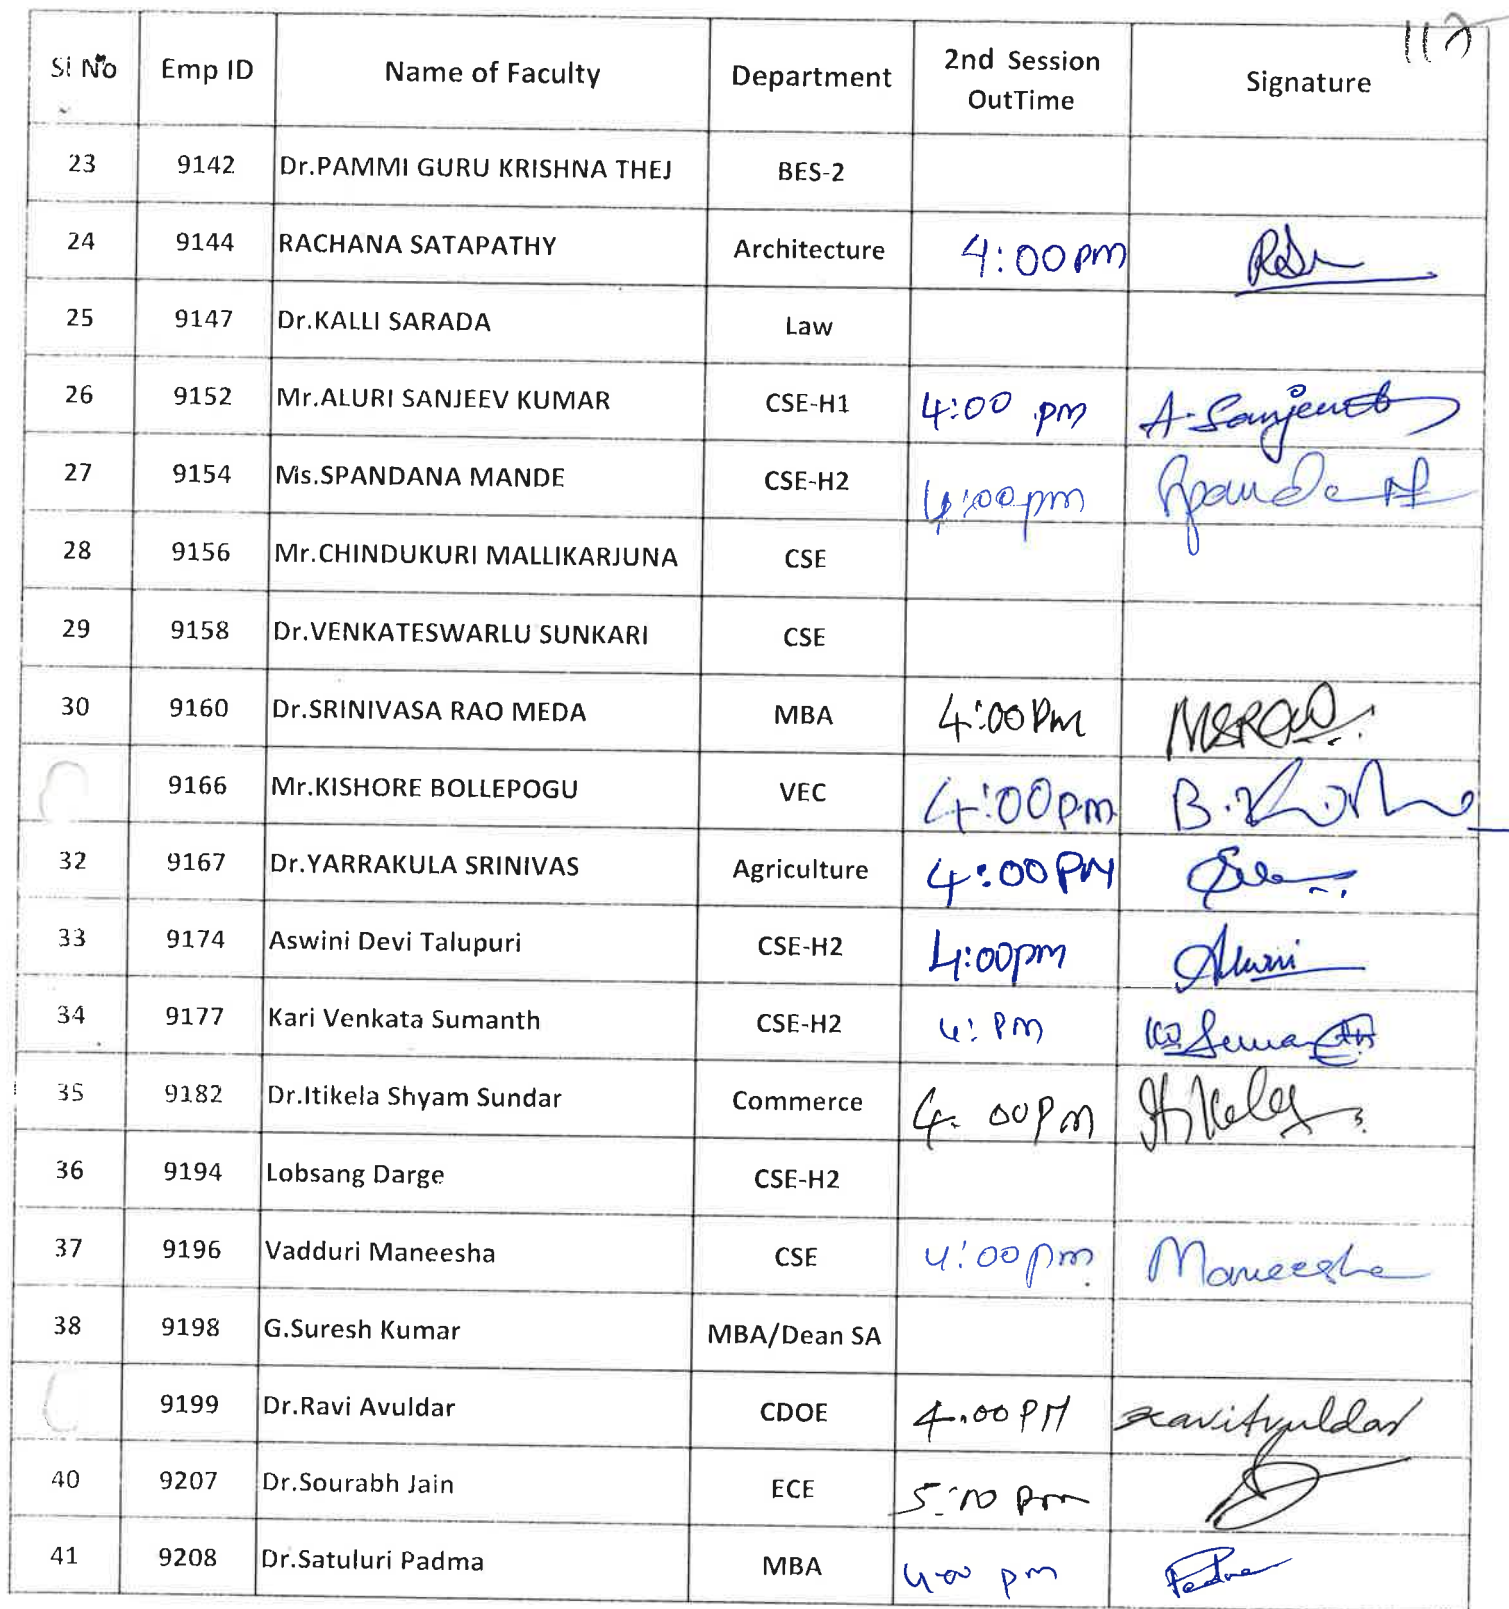 117
Sl No Emp ID Name of Faculty Department 2nd Session OutTime Signature
23 9142 Dr.PAMMI GURU KRISHNA THEJ BES-2
24 9144 RACHANA SATAPATHY Architecture 4:00 pm
25 9147 Dr.KALLI SARADA Law
26 9152 Mr.ALURI SANJEEV KUMAR CSE-H1 4:00 pm A.Sanjeev
27 9154 Ms.SPANDANA MANDE CSE-H2 4:00pm
28 9156 Mr.CHINDUKURI MALLIKARJUNA CSE
29 9158 Dr.VENKATESWARLU SUNKARI CSE
30 9160 Dr.SRINIVASA RAO MEDA MBA 4:00 Pm MSRao
9166 Mr.KISHORE BOLLEPOGU VEC 4:00pm
32 9167 Dr.YARRAKULA SRINIVAS Agriculture 4:00 PM
33 9174 Aswini Devi Talupuri CSE-H2 4:00pm
34 9177 Kari Venkata Sumanth CSE-H2 4: PM
35 9182 Dr.Itikela Shyam Sundar Commerce 4. 00 Pm Itikela
36 9194 Lobsang Darge CSE-H2
37 9196 Vadduri Maneesha CSE 4:00 pm Maneesha
38 9198 G.Suresh Kumar MBA/Dean SA
9199 Dr.Ravi Avuldar CDOE 4.00 PM raviAvuldar
40 9207 Dr.Sourabh Jain ECE pm
41 9208 Dr.Satuluri Padma MBA 4.00 pm Padma